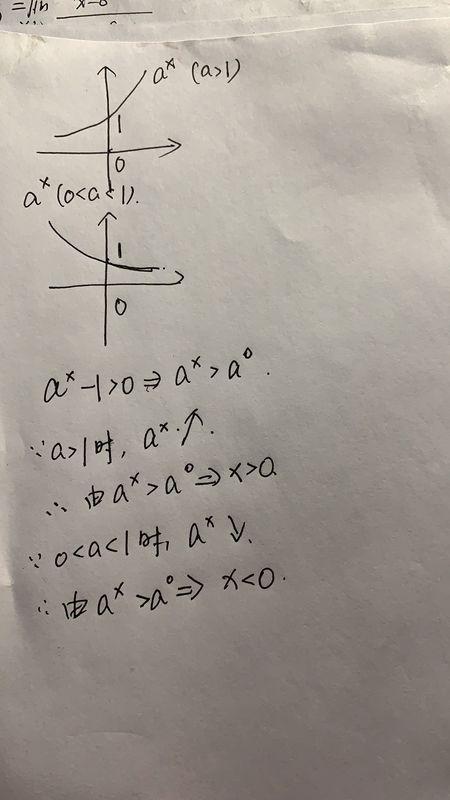 =lim
a^x (a>1)
1
0
a^x (0<a<1).
1
0
a^x-1>0 ⇒ a^x>a^0.
∵a>1时, a^x·↗.
∴ 由a^x>a^0⇒x>0
∵ 0<a<1时, a^x↓.
∴由a^x>a^0⇒ x<0.